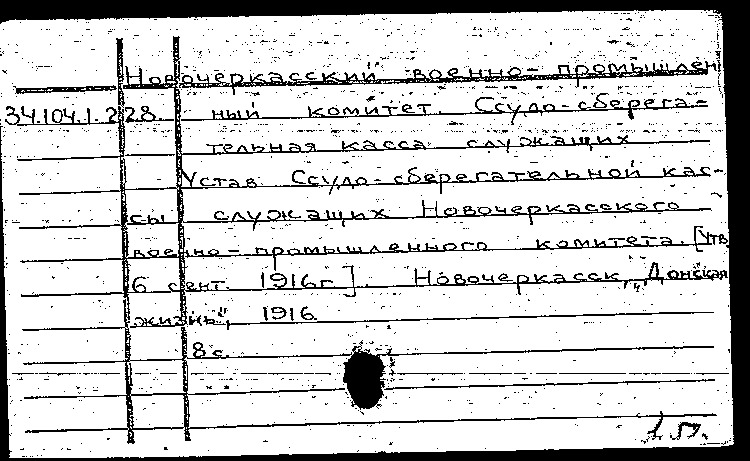 Новочеркасский военно-промышлен
34.104.1.228. ный комитет. Ссудо-сберега-
тельная касса служащих
Устав Ссудо-сберегательной кас-
сы служащих Новочеркасского
военно-промышленного комитета. [Утв
6 сент. 1916г.]. Новочеркасск, "Донская
жизнь", 1916.
8 с.